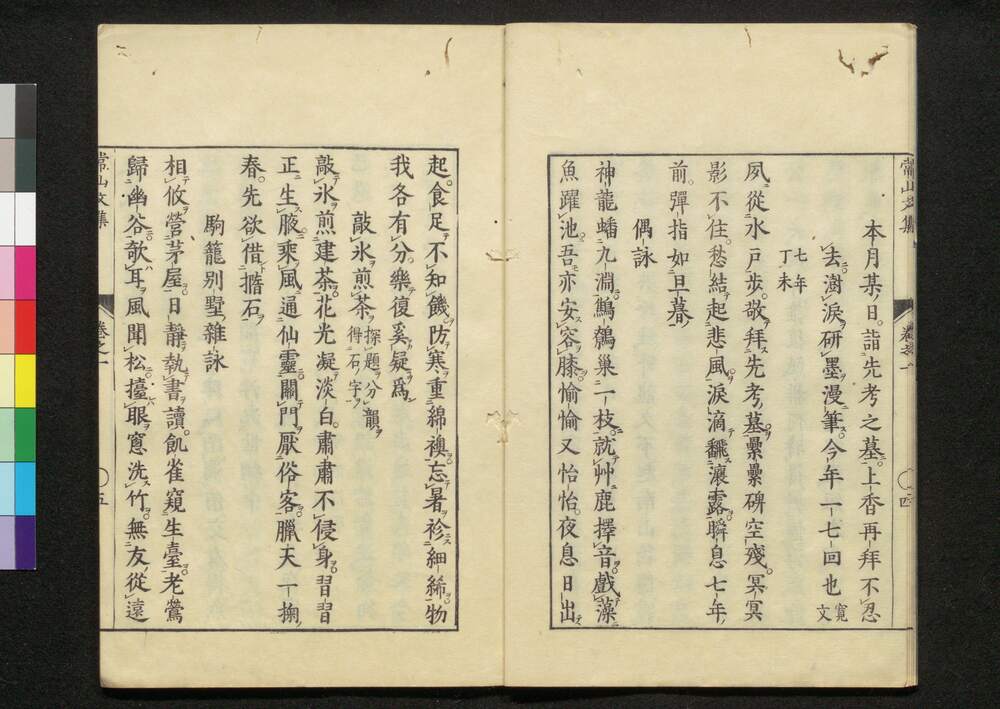 本月某日詣先考之墓上香再拜不忍
去澍淚研墨漫筆今年一七回也寬文
七年丁未
夙從水戸歩敬拜先考墓纍纍碑空殘冥冥
影不住愁結起悲風淚滴飜瀼露瞬息七年
前彈指如旦暮
偶詠
神龍蟠九淵鷦鷯巢一枝就艸鹿擇音戲藻
魚躍池吾亦安容膝愉愉又怡怡夜息日出
常山文集
卷之一
四
起食足不知饑防寒重綿襖忘暑袗細絺物
我各有分樂復奚疑爲
敲氷煎茶探題分韻得石字
敲氷煎建茶花光凝淡白肅肅不侵身習習
正生腋乘風通仙靈關門厭俗客臘天一掬
春先欲借擔石
駒籠别墅雜詠
相攸營茅屋日静執書讀飢雀窺生臺老鶯
歸幽谷欹耳風聞松擡眼窓洗竹無友從遠
常山文集
卷之一
五